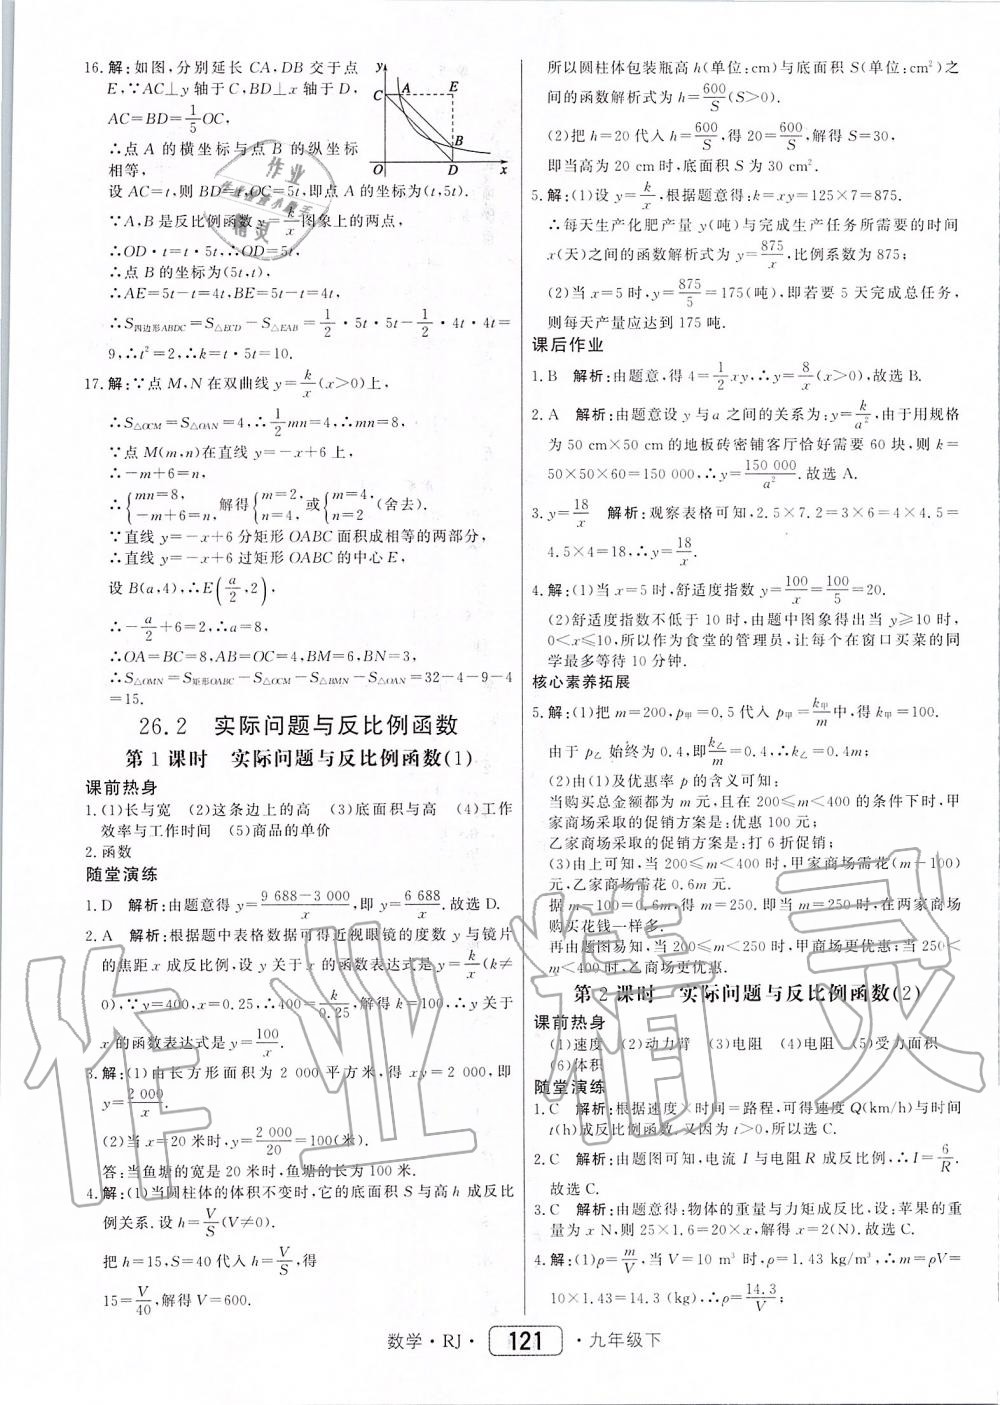 16. 解:如图,分别延长 CA,DB 交于点
E,∵AC⊥y 轴于 C,BD⊥x 轴于 D,
AC=BD=1/5 OC,
∴点 A 的横坐标与点 B 的纵坐标
相等,
设 AC=t,则 BD=t,OC=5t,即点 A 的坐标为(t,5t).
∵A,B 是反比例函数 y=k/x 图象上的两点,
∴OD·t=t·5t,∴OD=5t,
∴点 B 的坐标为(5t,t),
∴AE=5t-t=4t,BE=5t-t=4t,
∴S四边形ABDC=S△ECD-S△EAB=1/2·5t·5t-1/2·4t·4t=
9,∴t²=2,∴k=t·5t=10.
17. 解:∵点 M,N 在双曲线 y=k/x(x>0)上,
∴S△OCM=S△OAN=4,∴1/2 mn=4,∴mn=8,
∵点 M(m,n)在直线 y=-x+6 上,
∴-m+6=n,
∴{mn=8, -m+6=n, 解得{m=2, n=4 或{m=4, n=2 (舍去).
∵直线 y=-x+6 分矩形 OABC 面积成相等的两部分,
∴直线 y=-x+6 过矩形 OABC 的中心 E,
设 B(a,4),∴E(a/2,2),
∴-a/2+6=2,∴a=8,
∴OA=BC=8,AB=OC=4,BM=6,BN=3,
∴S△OMN=S矩形OABC-S△OCM-S△BMN-S△OAN=32-4-9-4
=15.
26.2 实际问题与反比例函数
第1课时 实际问题与反比例函数(1)
课前热身
1. (1)长与宽 (2)这条边上的高 (3)底面积与高 (4)工作
效率与工作时间 (5)商品的单价
2. 函数
随堂演练
1. D 解析:由题意得 y=9 688-3 000/x,即 y=6 688/x.故选 D.
2. A 解析:根据题中表格数据可得近视眼镜的度数 y 与镜片
的焦距 x 成反比例,设 y 关于 x 的函数表达式是 y=k/x(k≠
0),∵y=400,x=0.25,∴400=k/0.25,解得 k=100,∴y 关于
x 的函数表达式是 y=100/x.
3. 解:(1)由长方形面积为 2 000 平方米,得 xy=2 000,即
y=2 000/x.
(2)当 x=20 米时,y=2 000/20=100(米).
答:当鱼塘的宽是 20 米时,鱼塘的长为 100 米.
4. 解:(1)当圆柱体的体积不变时,它的底面积 S 与高 h 成反比
例关系.设 h=V/S(V≠0),
把 h=15,S=40 代入 h=V/S,得
15=V/40,解得 V=600.
y
C
A
E
B
O
D
x
所以圆柱体包装瓶高 h(单位:cm)与底面积 S(单位:cm²)之
间的函数解析式为 h=600/S(S>0).
(2)把 h=20 代入 h=600/S,得 20=600/S,解得 S=30,
即当高为 20 cm 时,底面积 S 为 30 cm².
5. 解:(1)设 y=k/x,根据题意得:k=xy=125×7=875.
∴每天生产化肥产量 y(吨)与完成生产任务所需要的时间
x(天)之间的函数解析式为 y=875/x,比例系数为 875;
(2)当 x=5 时,y=875/5=175(吨),即若要 5 天完成总任务,
则每天产量应达到 175 吨.
课后作业
1. B 解析:由题意,得 4=1/2 xy,∴y=8/x(x>0),故选 B.
2. A 解析:由题意设 y 与 a 之间的关系为:y=k/a²,由于用规格
为 50 cm×50 cm 的地板砖密铺客厅恰好需要 60 块,则 k=
50×50×60=150 000,∴y=150 000/a².故选 A.
3. y=18/x 解析:观察表格可知,2.5×7.2=3×6=4×4.5=
4.5×4=18,∴y=18/x.
4. 解:(1)当 x=5 时,舒适度指数 y=100/x=100/5=20.
(2)舒适度指数不低于 10 时,由题中图象得出当 y≥10 时,
0<x≤10,所以作为食堂的管理员,让每个在窗口买菜的同
学最多等待 10 分钟.
核心素养拓展
5. 解:(1)把 m=200,p甲=0.5 代入 p甲=k甲/m 中,得 k甲=100.
由于 p乙 始终为 0.4,即 k乙/m=0.4,所以 k乙=0.4m.
(2)由(1)及优惠率 p 的含义可知:
当购买总金额都为 m 元,且在 200≤m<400 的条件下时,甲
家商场采取的促销方案是:优惠 100 元;
乙家商场采取的促销方案是:打 6 折促销;
(3)由上可知,当 200≤m<400 时,甲家商场需花(m-100)
元,乙家商场需花 0.6m 元.
据 m-100=0.6m,得 m=250.即当 m=250 时,在两家商场
购买花钱一样多.
再由题图易知,当 200≤m<250 时,甲商场更优惠;当 250<
m<400 时,乙商场更优惠.
第2课时 实际问题与反比例函数(2)
课前热身
(1)速度 (2)动力臂 (3)电阻 (4)电阻 (5)受力面积
(6)体积
随堂演练
1. C 解析:根据速度×时间=路程,可得速度 Q(km/h)与时间
t(h)成反比例函数.又因为 t>0,所以选 C.
2. C 解析:由题图可知,电流 I 与电阻 R 成反比例,∴I=6/R.
故选 C.
3. C 解析:由题意得:物体的重量与力矩成反比,设:苹果的重
量为 x N,则 25×1.6=20×x,解得 x=2(N).故选 C.
4. 解:(1)ρ=m/V,当 V=10 m³ 时,ρ=1.43 kg/m³,∴m=ρV=
10×1.43=14.3 (kg),∴ρ=14.3/V;
数学·RJ· 121 ·九年级下
作业精灵